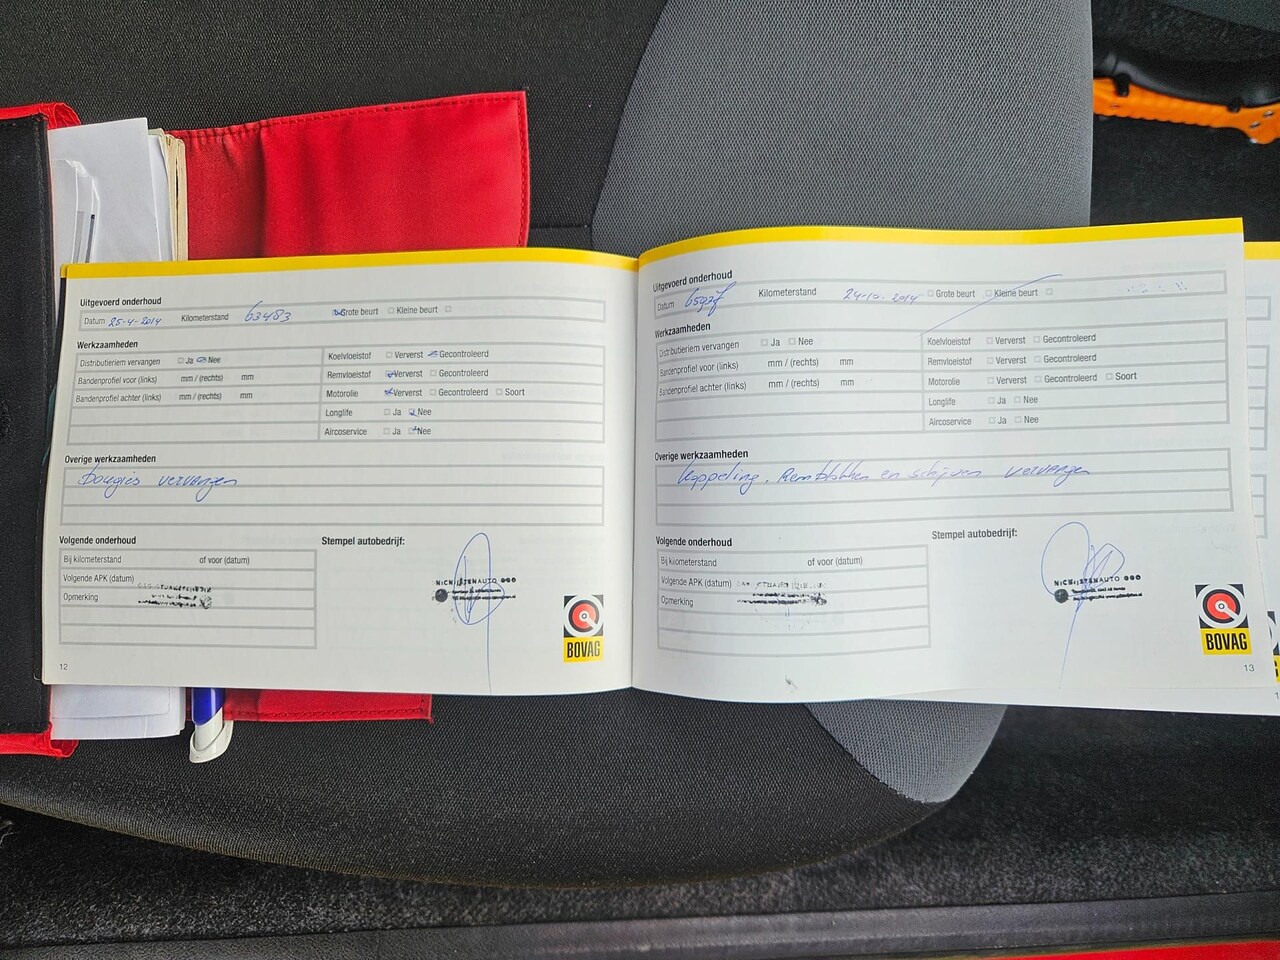 Uitgevoerd onderhoud
Datum 25-4-2014 Kilometerstand 63483 Grote beurt Kleine beurt
Werkzaamheden
Distributieriem vervangen Ja Nee
Bandenprofiel voor (links) mm / (rechts) mm
Bandenprofiel achter (links) mm / (rechts) mm
Koelvloeistof Ververst Gecontroleerd
Remvloeistof Ververst Gecontroleerd
Motorolie Ververst Gecontroleerd Soort
Longlife Ja Nee
Aircoservice Ja Nee
Overige werkzaamheden
Bougies vervangen
Volgende onderhoud
Bij kilometerstand of voor (datum)
Volgende APK (datum)
Opmerking
Stempel autobedrijf:
BOVAG
12
Uitgevoerd onderhoud
Datum Kilometerstand 24-10-2014 Grote beurt Kleine beurt
Werkzaamheden
Distributieriem vervangen Ja Nee
Bandenprofiel voor (links) mm / (rechts) mm
Bandenprofiel achter (links) mm / (rechts) mm
Koelvloeistof Ververst Gecontroleerd
Remvloeistof Ververst Gecontroleerd
Motorolie Ververst Gecontroleerd Soort
Longlife Ja Nee
Aircoservice Ja Nee
Overige werkzaamheden
Koppeling, Remblokken en schijven vervangen
Volgende onderhoud
Bij kilometerstand of voor (datum)
Volgende APK (datum)
Opmerking
Stempel autobedrijf:
BOVAG
13